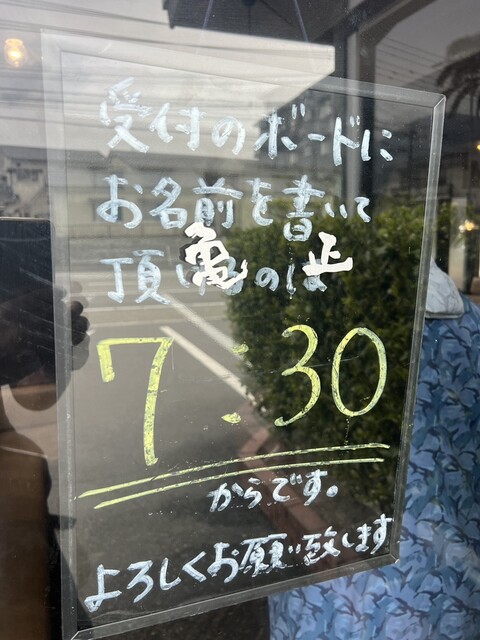 受付のボードに
お名前を書いて
頂けるのは
亀 正
7:30
からです。
よろしくお願い致します